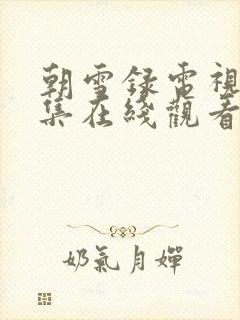 朝雪録電視
集在綫觀看
奶氣月嬋